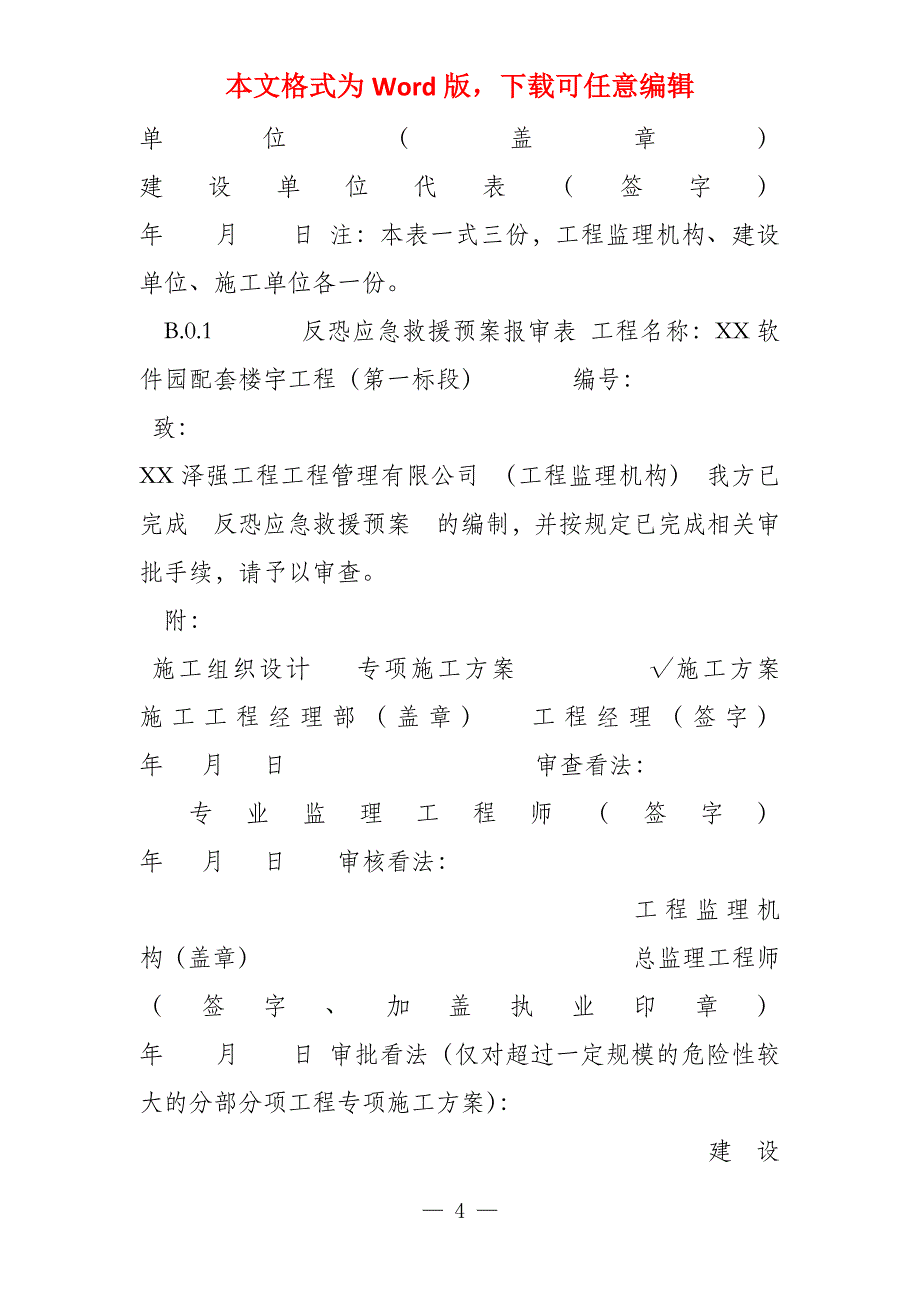 本文格式为 Word 版，下载可任意编辑
单位（盖章）
建设单位代表（签字）
年 月 日 注：本表一式三份，工程监理机构、建设
单位、施工单位各一份。
B.0.1 反恐应急救援预案报审表 工程名称：XX 软
件园配套楼宇工程（第一标段） 编号：
致：
XX 泽强工程工程管理有限公司 （工程监理机构） 我方已
完成 反恐应急救援预案 的编制，并按规定已完成相关审
批手续，请予以审查。
附：
施工组织设计 专项施工方案 √施工方案
施工工程经理部（盖章） 工程经理（签字）
年 月 日 审查看法：
专业监理工程师（签字）
年 月 日 审核看法：
工程监理机
构（盖章） 总监理工程师
（签字、加盖执业印章）
年 月 日 审批看法（仅对超过一定规模的危险性较
大的分部分项工程专项施工方案）：
建 设
— 4 —